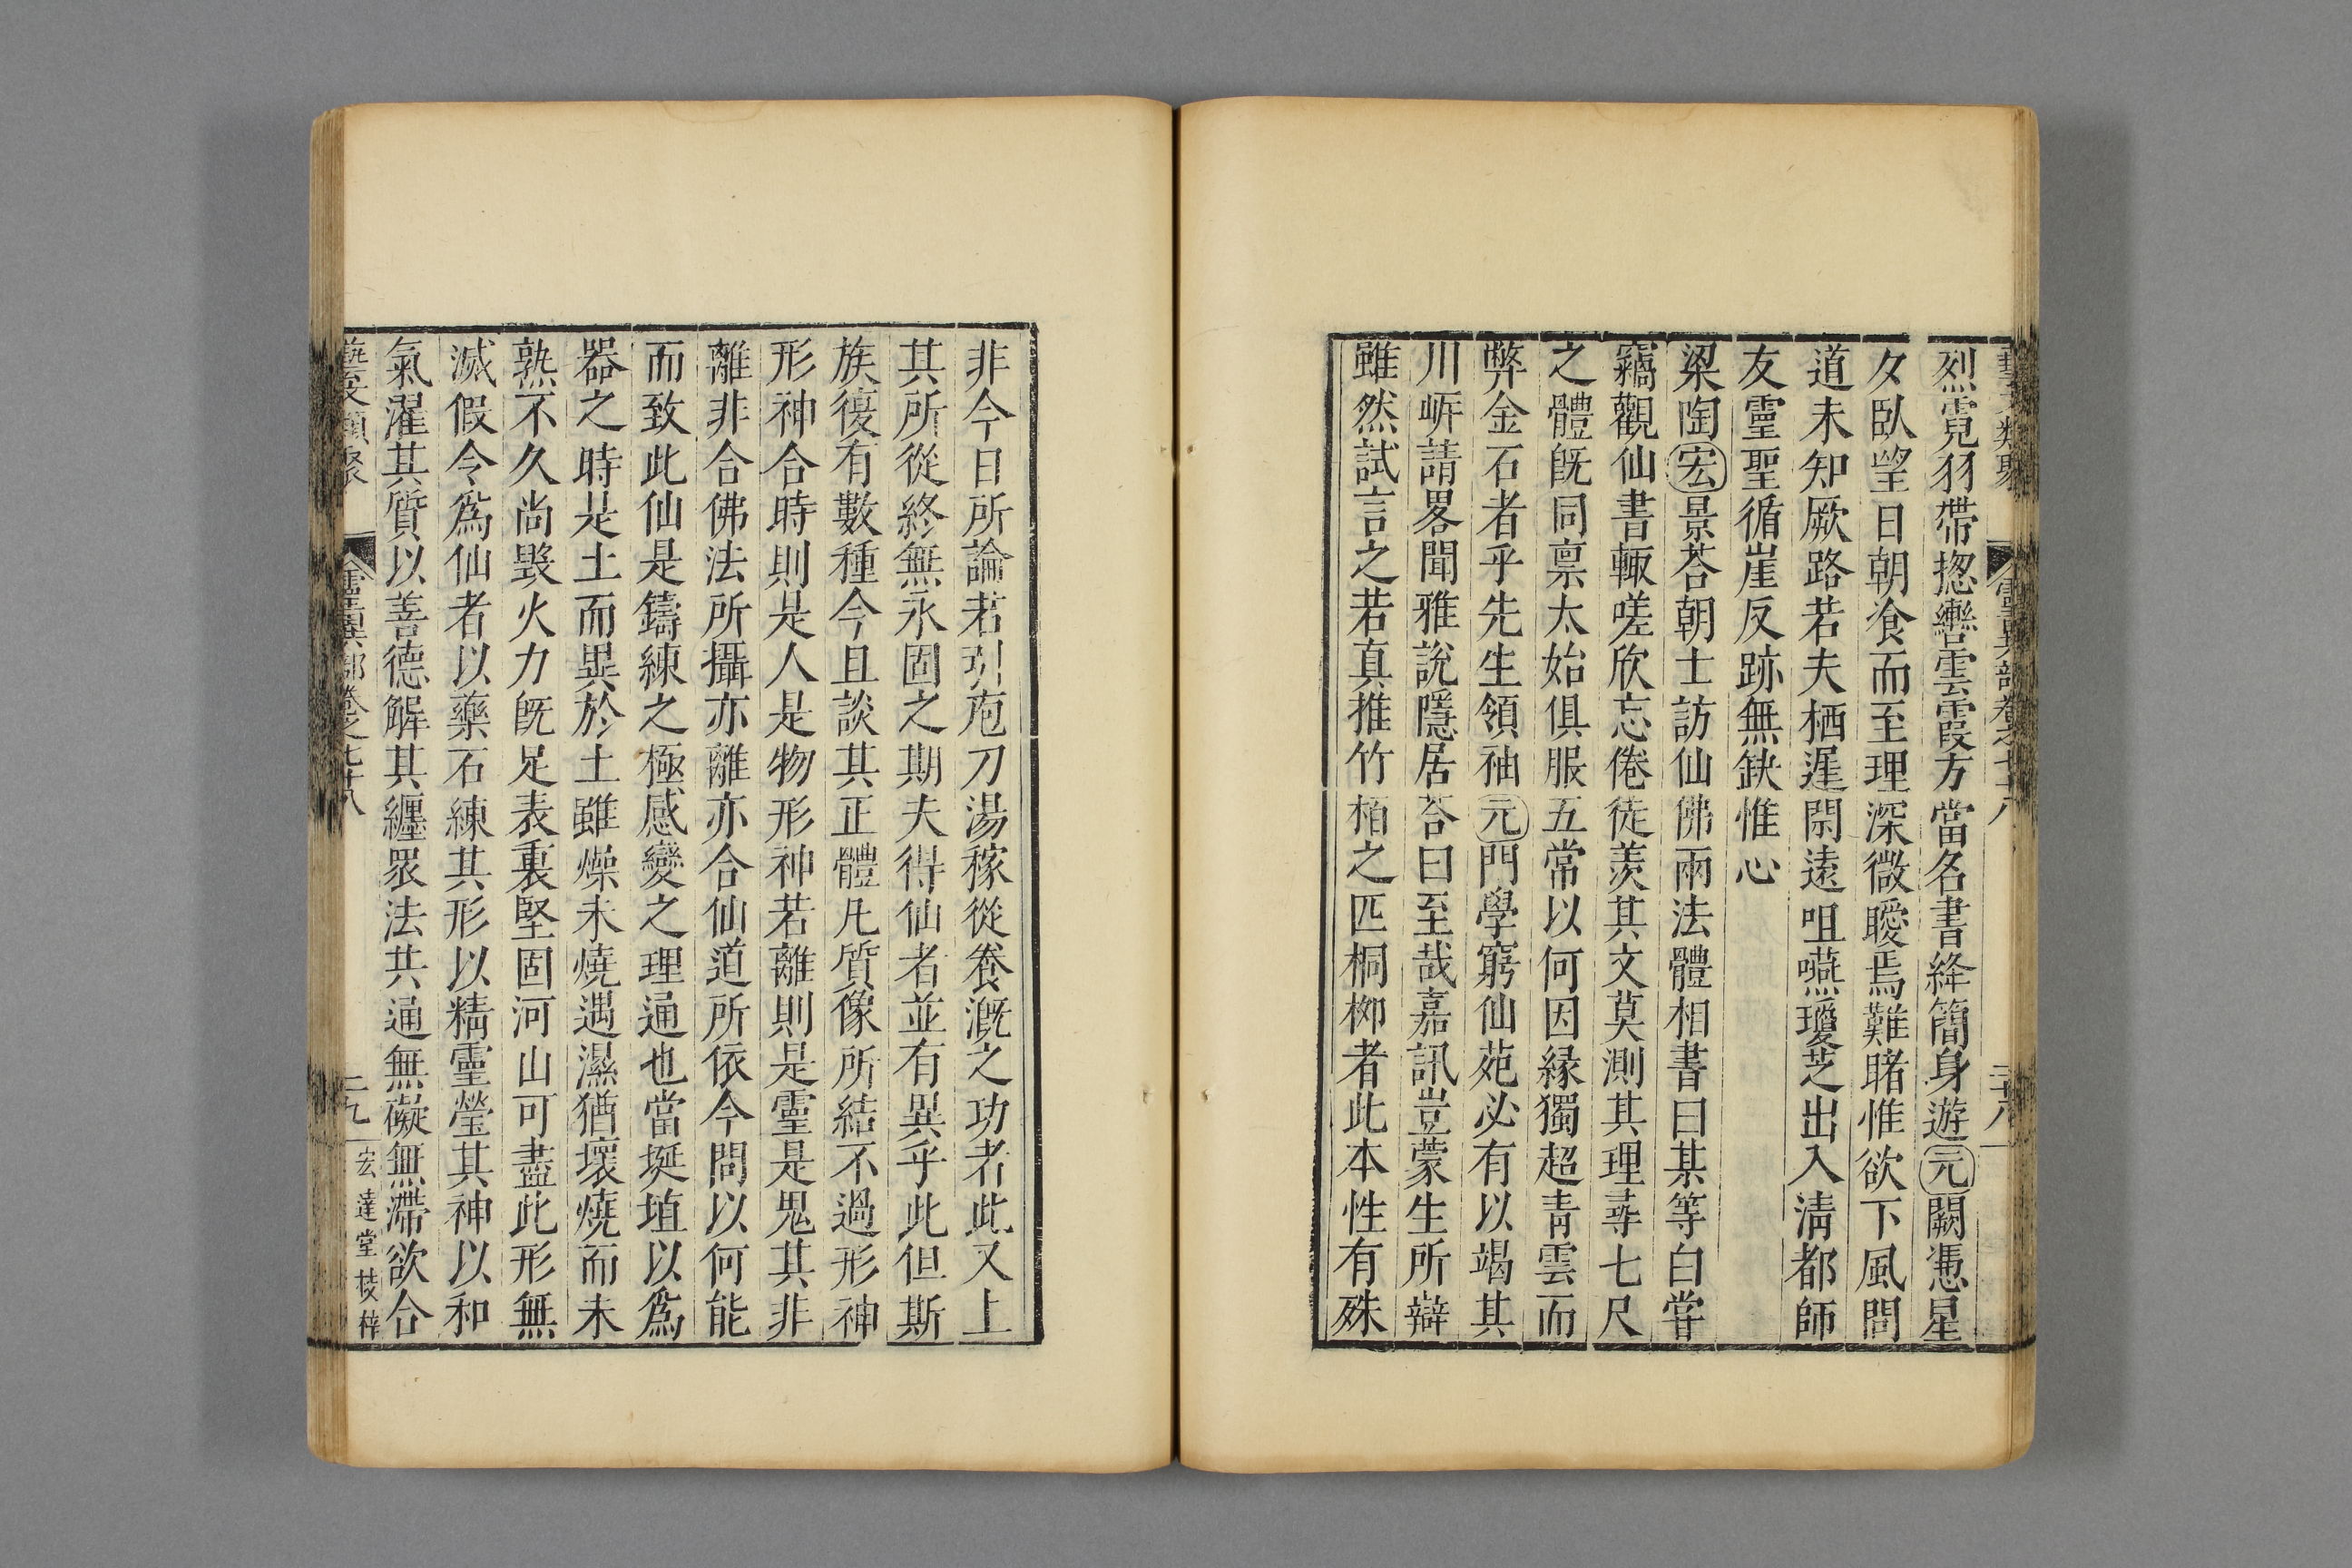 藝文類聚 靈異部卷之七十八 二十八
烈霓羽帶揔轡雲霞方當名書絳簡身遊元闕憑星
夂臥望日朝飡而至理深微曖焉難睹惟欲下風問
道未知厥路若夫栖遲閑遠咀嚥瓊芝出入清都師
友靈聖循崖反跡無缺惟心
梁陶宏景荅朝士訪仙佛兩法體相書曰某等白嘗
竊觀仙書輙嗟欣忘倦徒羨其文莫測其理尋七尺
之體旣同禀太始俱服五常以何因縁獨超青雲而
弊金石者乎先生領袖元門學窮仙苑必有以竭其
川㟁請畧聞雅說隱居荅曰至哉嘉訊豈蒙生所辯
雖然試言之若真推竹栢之匹桐栁者此本性有殊
非今日所論若引庖刀湯稼從養漑之功者此又上
其所從終無永固之期夫得仙者並有異乎此但斯
族復有數種今且談其正體凡質像所結不過形神
形神合時則是人是物形神若離則是靈是鬼其非
離非合佛法所攝亦離亦合仙道所依今問以何能
而致此仙是鑄練之極感變之理通也當埏埴以爲
器之時是土而異於土雖燥未燒遇濕猶壞燒而未
熟不久尚毀火力旣足表裏堅固河山可盡此形無
滅假令爲仙者以藥石練其形以精靈瑩其神以和
氣濯其質以善德解其纏眾法共通無礙無滯欲合
藝文類聚 靈異部卷之七十八 二九 宏達堂挍梓